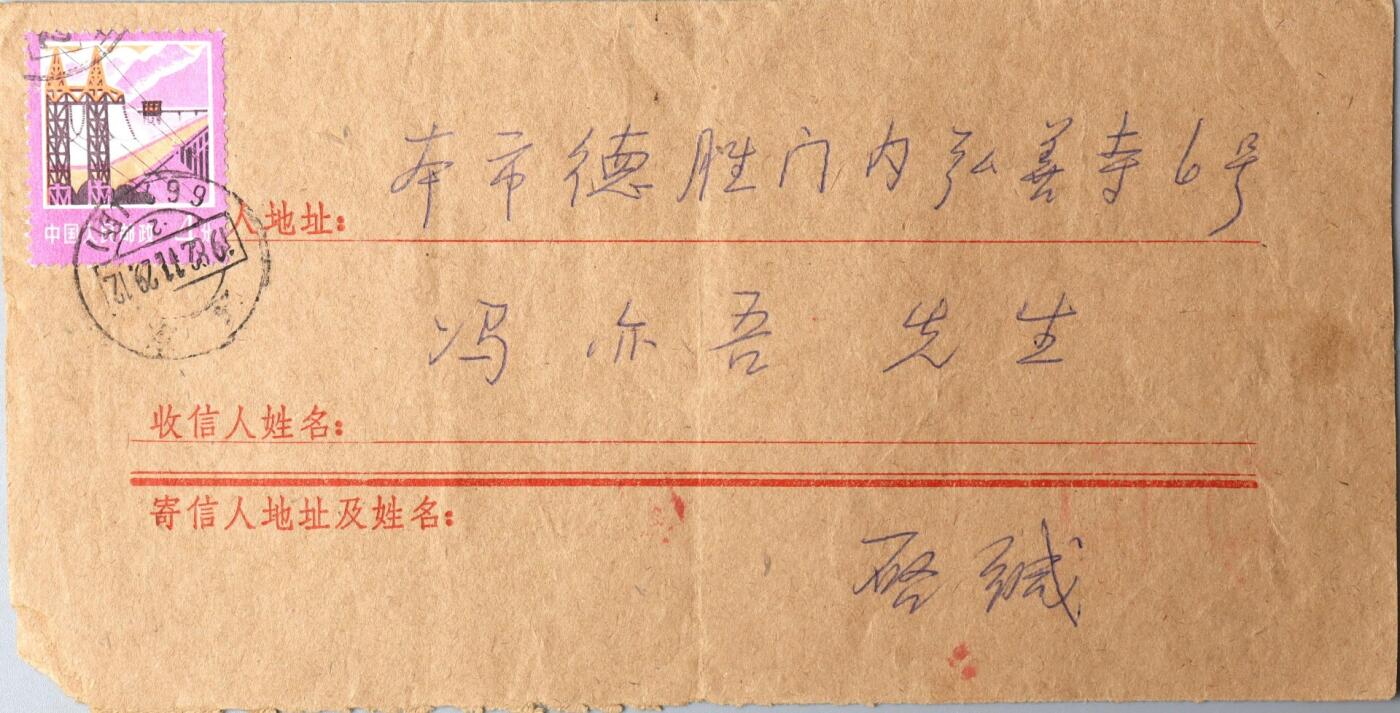 中国人民邮政 4分
1982.11.29.12
人地址:
本市德胜门内弘善寺6号
冯亦吾 先生
收信人姓名:
寄信人地址及姓名:
启缄